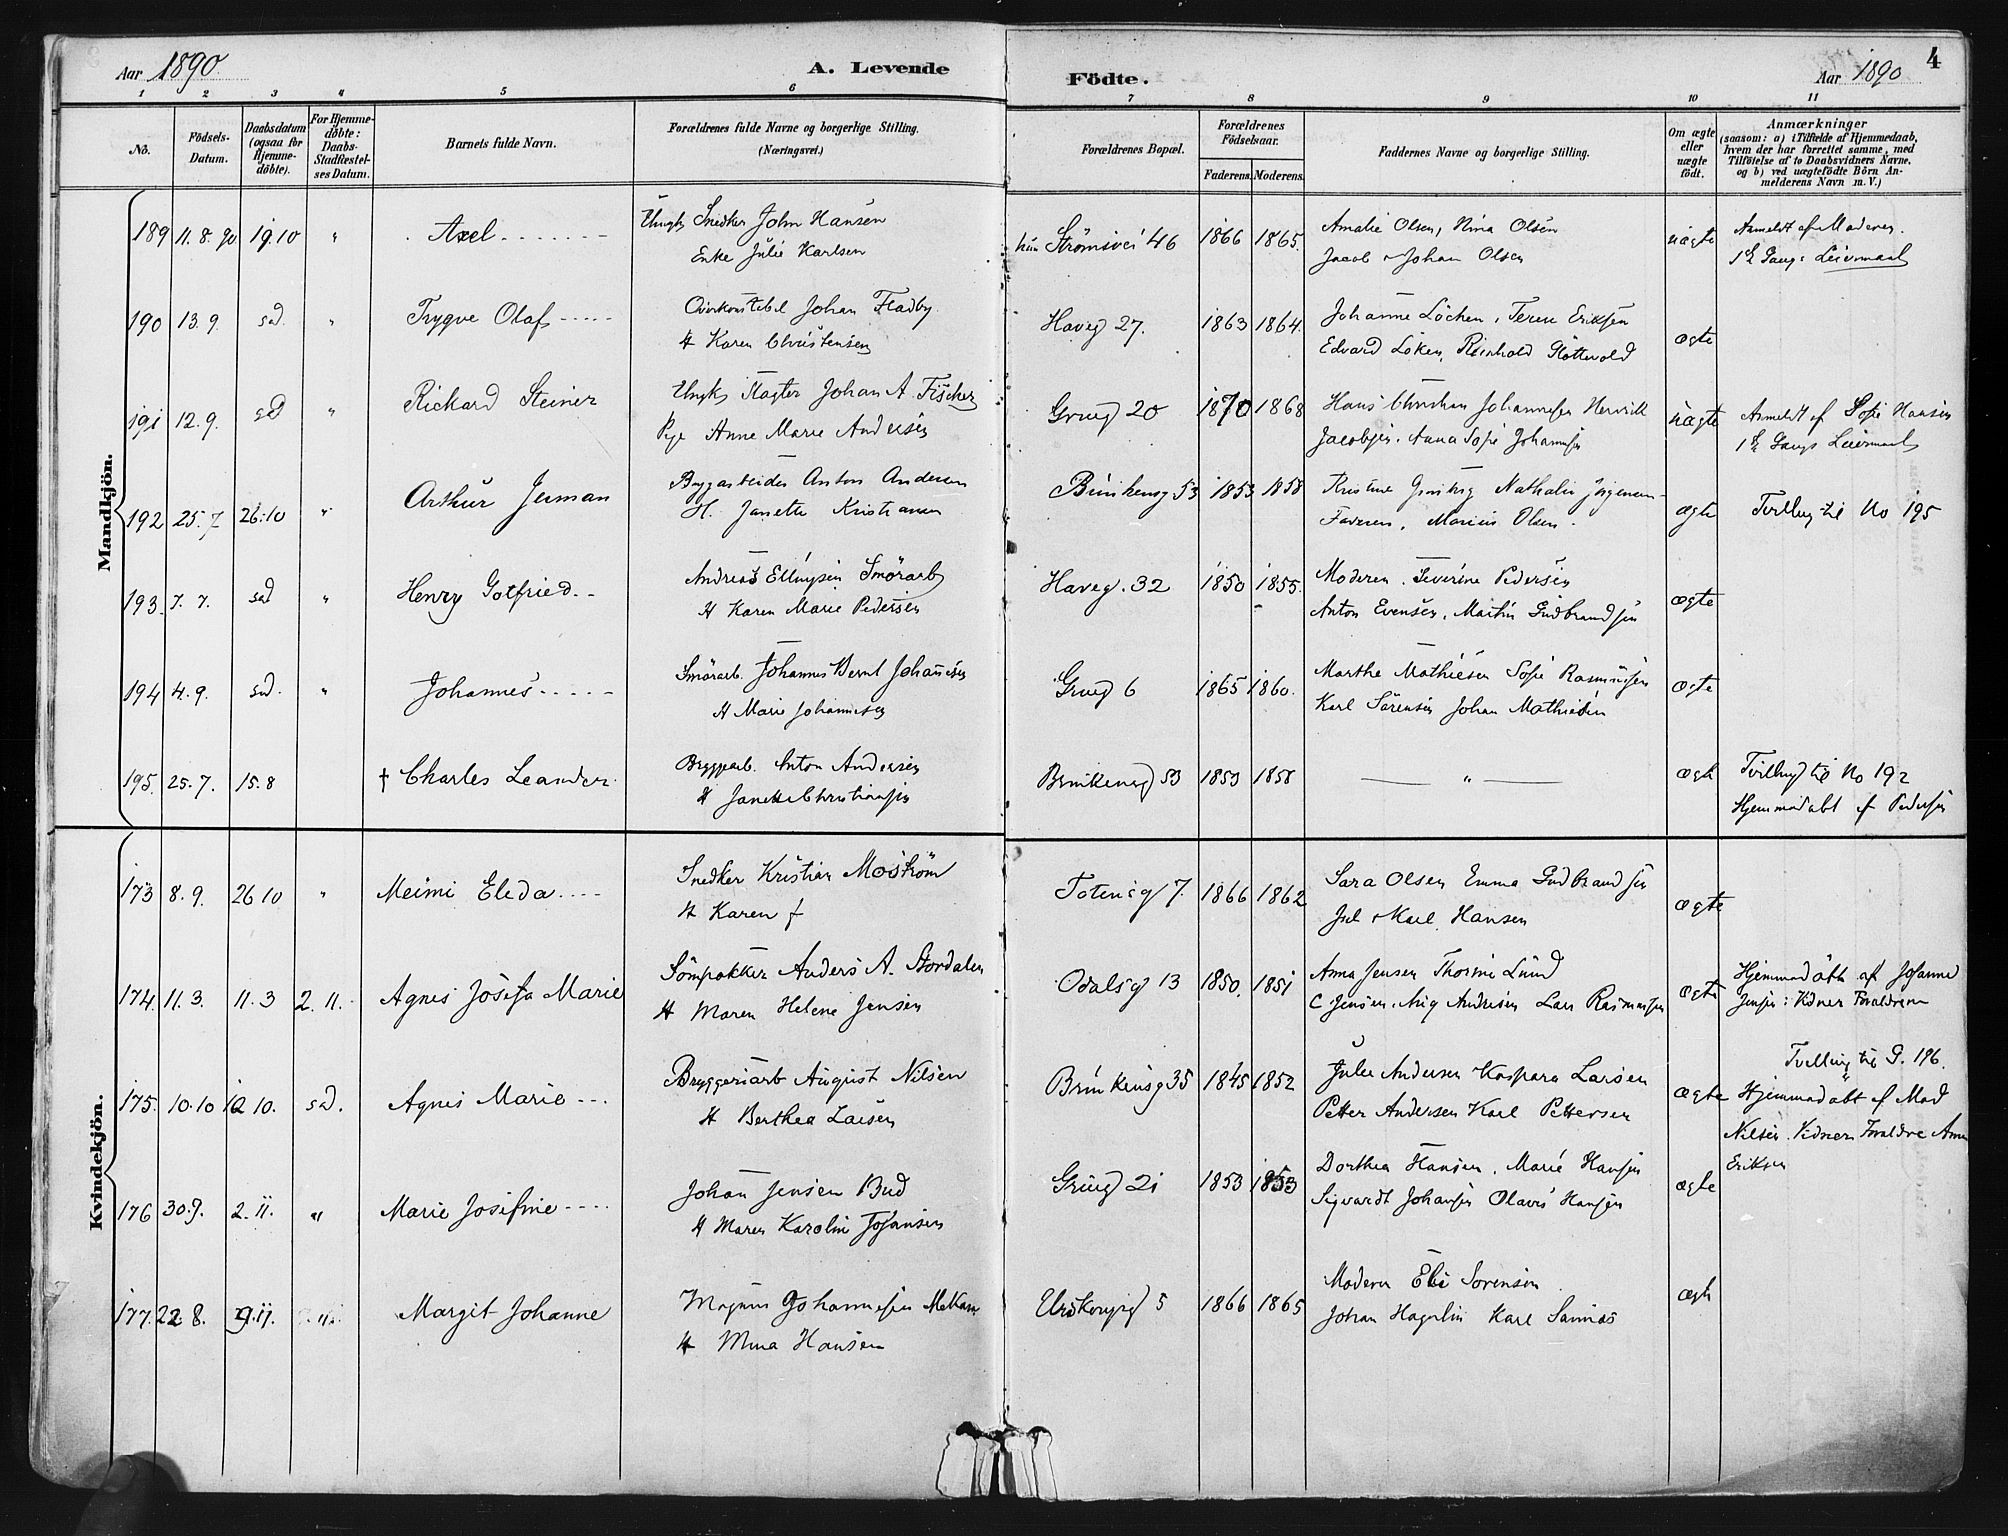 Aar 1890. A. Levende
Födte. Aar 1890 4
1 2 3 4 5 6 7 8 9 10 11
No.
Födsels-Datum.
Daabsdatum (ogsaa for Hjemme-döbte).
For Hjemme-döbte: Daabs-Stadfæstel-ses Datum.
Barnets fulde Navn.
Forældrenes fulde Navne og borgerlige Stilling. (Næringsvei.)
Forældrenes Bopæl.
Forældrenes Födselsaar.
Faderens. Moderens.
Faddernes Navne og borgerlige Stilling.
Om ægte eller uægte födt.
Anmærkninger
(saasom: a) i Tilfælde af Hjemmedaab, hvem der har forrettet samme, med Tilföielse af to Daabsvidners Navne, og b) ved uægtefödte Börn An-melderens Navn m. V.)
Mandkjön.
189 11.8.90 19.10 " Axel Ungk Snedker John Hansen Strömsvei 46 1866 1865. Amalie Olsen, Nina Olsen uægte Anmeldt af Moderen.
Enke Julie Karlsen Jacob & Johan Olsen 1ste Gangs Leiermaal
190 13.9. sad. " Trygve Olaf Overkonstabel Johan Fladby Haveg 27. 1863 1864. Johanne Löchen, Terese Eriksen ægte
H Karen Christensen Edvard Löken, Reinhold
191 12.9. sad " Rickard Steiner Ungk Slagter Johan A. Fischer Grueg 20 1870 1868 Hans Christian Johannesen uægte Anmeldt af Sofie Hansen
Pige Anne Marie Andersen Jacobsen. Anna Sofie Johannesen 1ste Gangs Leiermaal
192 25.7 26.10 " Arthur Jerman Byggarbeider Anton Andersen Brinkensg 53 1853 1858 Kristine Nathalie Jörgensen ægte Tvilling til No 195
H. Janette Kristiansen Faderen, Marius Olsen.
193. 7.7. sad " Henry Gotfried Andreas Ellingsen Smörarb Haveg. 32 1850 1855. Moderen. Severine Pedersen ægte
H Karen Marie Pedersen Anton Evensen, Martin Gudbrandsen
194 4.9. sad. " Johannes Smörarb. Johannes Bernt Johannesen Grueg 6 1865 1860. Marthe Mathiesen Sofie Rasmussen ægte
H Marie Johannesen Karl Sörensen Johan Mathiesen
195. 25.7. 15.8 † Charles Leander Bryggarb. Anton Andersen Brinkensg 53 1853 1858 " ægte Tvilling til No 192
H Janette Christiansen Hjemmedøbt af Pedersen
Kvindekjön.
173 8.9. 26 10 " Meimi Eleda Snedker Kristian Moström Totensg 7. 1866 1862 Sara Olsen Emma Gudbrandsen ægte
H Karen f Jul & Karl Hansen
174 11.3. 11.3 2.11. Agnes Josefa Marie Anders A. Stordalen Odalsg 13 1850. 1851 Anna Jensen Thorine Lund ægte Hjemmedöbt af Johanne
H Maren Helene Jensen C Jensen, Aug Andersen Lars Rasmussen Jensen: Vidner Forældrene
175. 10.10 12 10. sad. Agnes Marie Bryggeriarb August Nilsen Brinkensg 35 1845 1852 Julie Andersen Kaspara Larsen ægte Tvilling til G. 196.
H Berthea Larsen Petter Andersen Karl Pettersen Hjemmedöbt af Mad
Nilsen. Vidner Forældre Anna
Eriksen
176 30.9. 2.11. " Marie Josefine Johan Jensen Bud Grueg 21 1853 1853 Dorthea Hansen. Marie Hansen ægte
H Maren Karoline Johansen Sigvardt Johansen Olaves Hansen
177. 22.8. 9.11. Margit Johanne Magnus Johannesen Mekan Urskougsg 5 1866 1865 Moderen Elie Sorensen ægte
H Mina Hansen Johan Hagelin Karl Sannæs